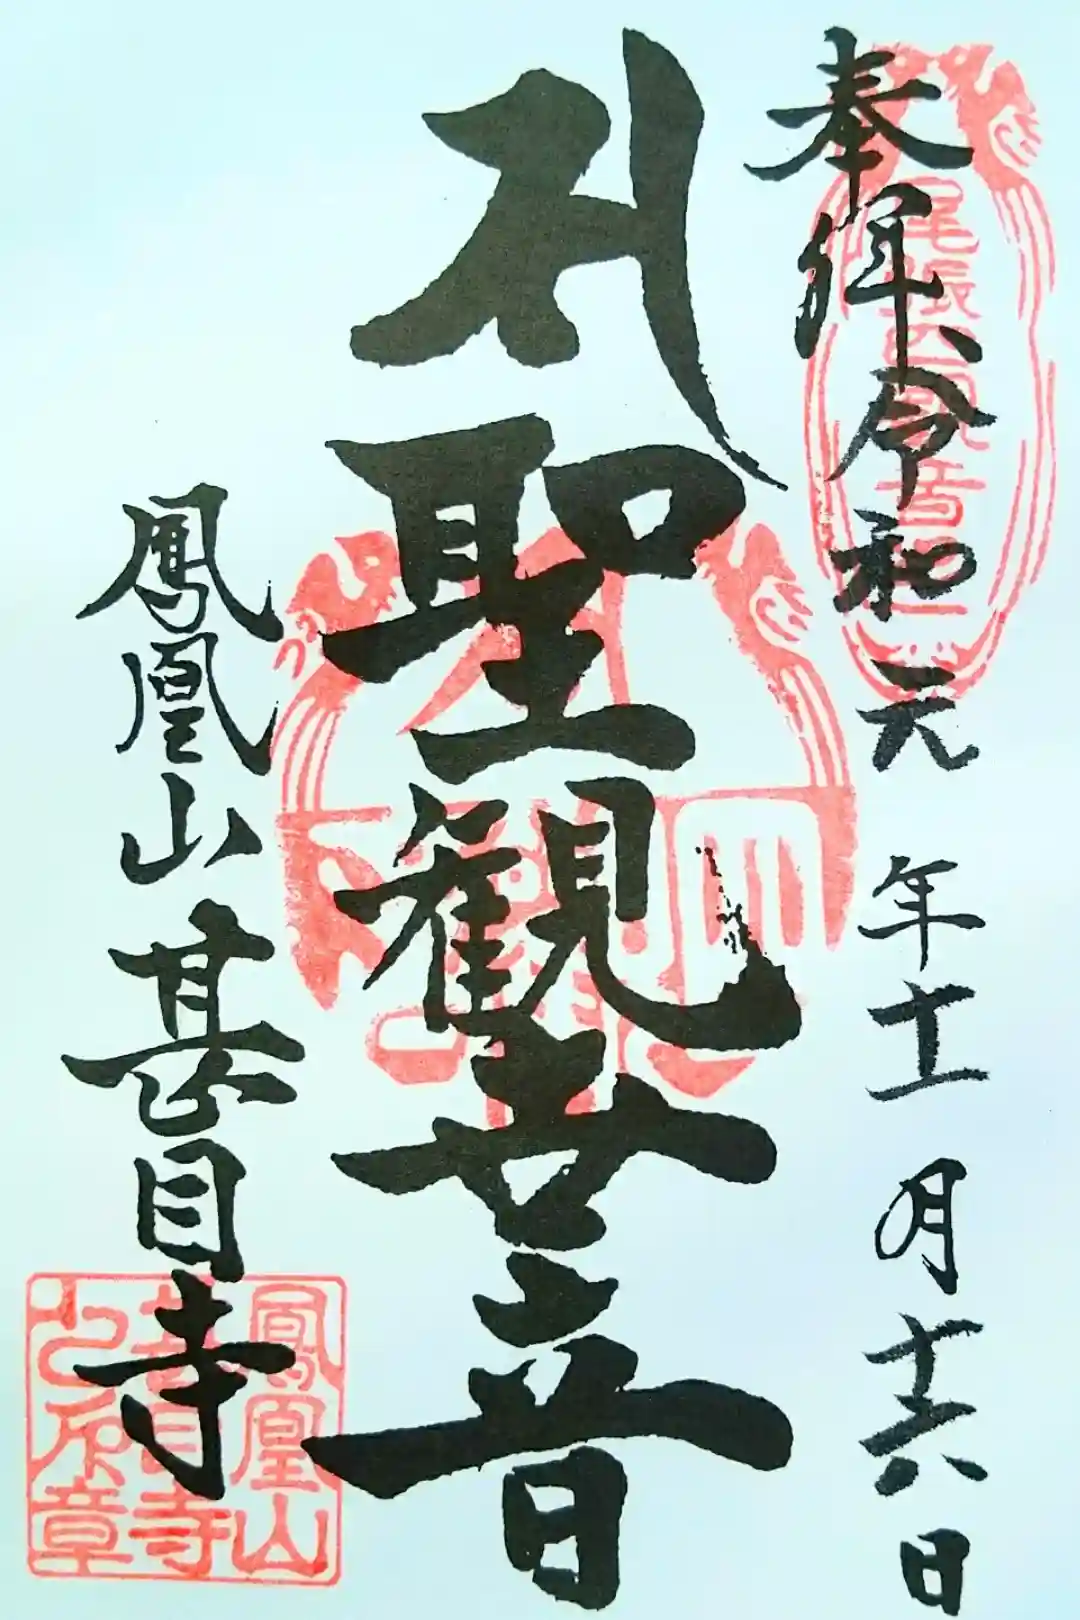 奉拝 令和元年十一月十六日
尾張四観音
聖観世音
鳳凰山甚目寺
鳳凰山
甚目寺
之印章